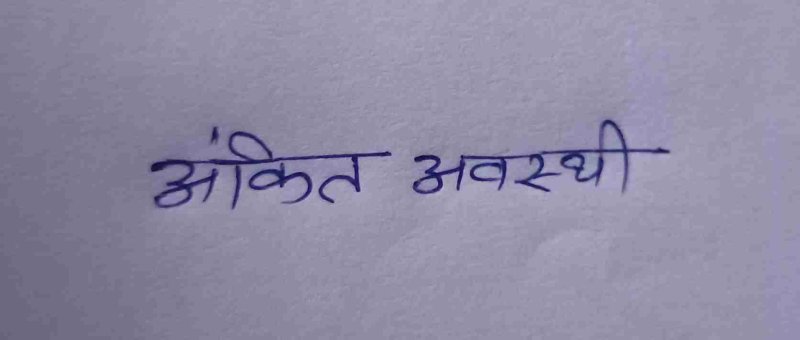 अंकित अवस्थी